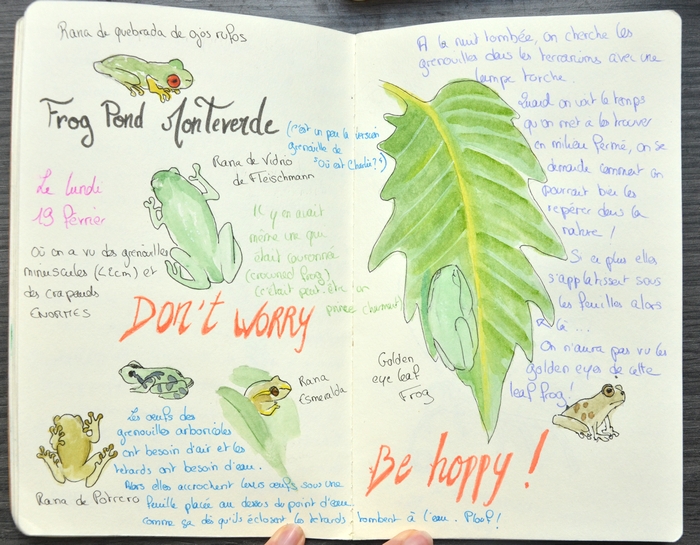 Rana de quebrada de ojos rufos
Frog Pond Monteverde
(c'est un peu la version
grenouille de
"Où est Charlie?")
Le lundi
19 février
Rana de Vidrio
de Fleischmann
Où on a vu des grenouilles
minuscules (<2cm) et
des crapauds
ENORMES
Il y en avait
même une qui
était couronnée
(crowned frog)
(c'était peut-être un
prince charmant)
DON'T WORRY
Rana
Esmeralda
Les œufs des
grenouilles arboricoles
ont besoin d'air et les
têtards ont besoin d'eau.
Alors elles accrochent leurs œufs sous une
feuille placée au dessus du point d'eau
comme ça dès qu'ils éclosent les têtards tombent à l'eau. Plouf!
Rana de Potrero
A la nuit tombée, on cherche les
grenouilles dans les terrariums avec une
lampe torche.
Quand on voit le temps
qu'on met à les trouver
en milieu fermé, on se
demande comment on
pourrait bien les
repérer dans la
nature!
Si en plus elles
s'applatissent sous
les feuilles alors
là...
On n'aura pas vu les
golden eyes de cette
leaf frog!
Golden
eye leaf
Frog
Be hoppy!